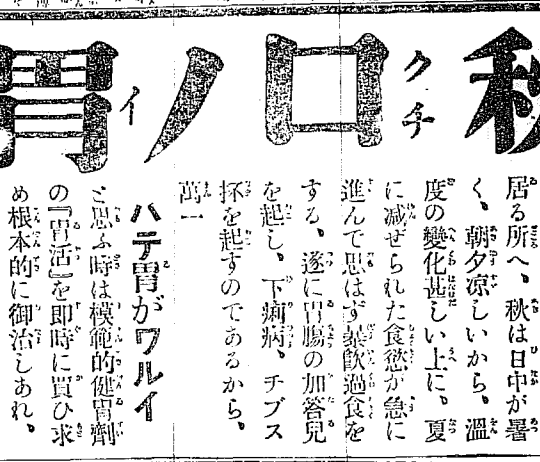 秋口ノ胃
クチ
イ
居る所へ、秋は日中が暑
く、朝夕凉しいから、溫
度の變化甚しい上に、夏
に减ぜられた食慾が急に
進んで思はず暴飮過食を
する、遂に胃腸の加答兒
を起し、下痢病、チブス
抔を起すのであるから、
萬一
ハテ胃がワルイ
と思ふ時は模範的健胃劑
の『胃活』を卽時に買ひ求
め根本的に御治しあれ。